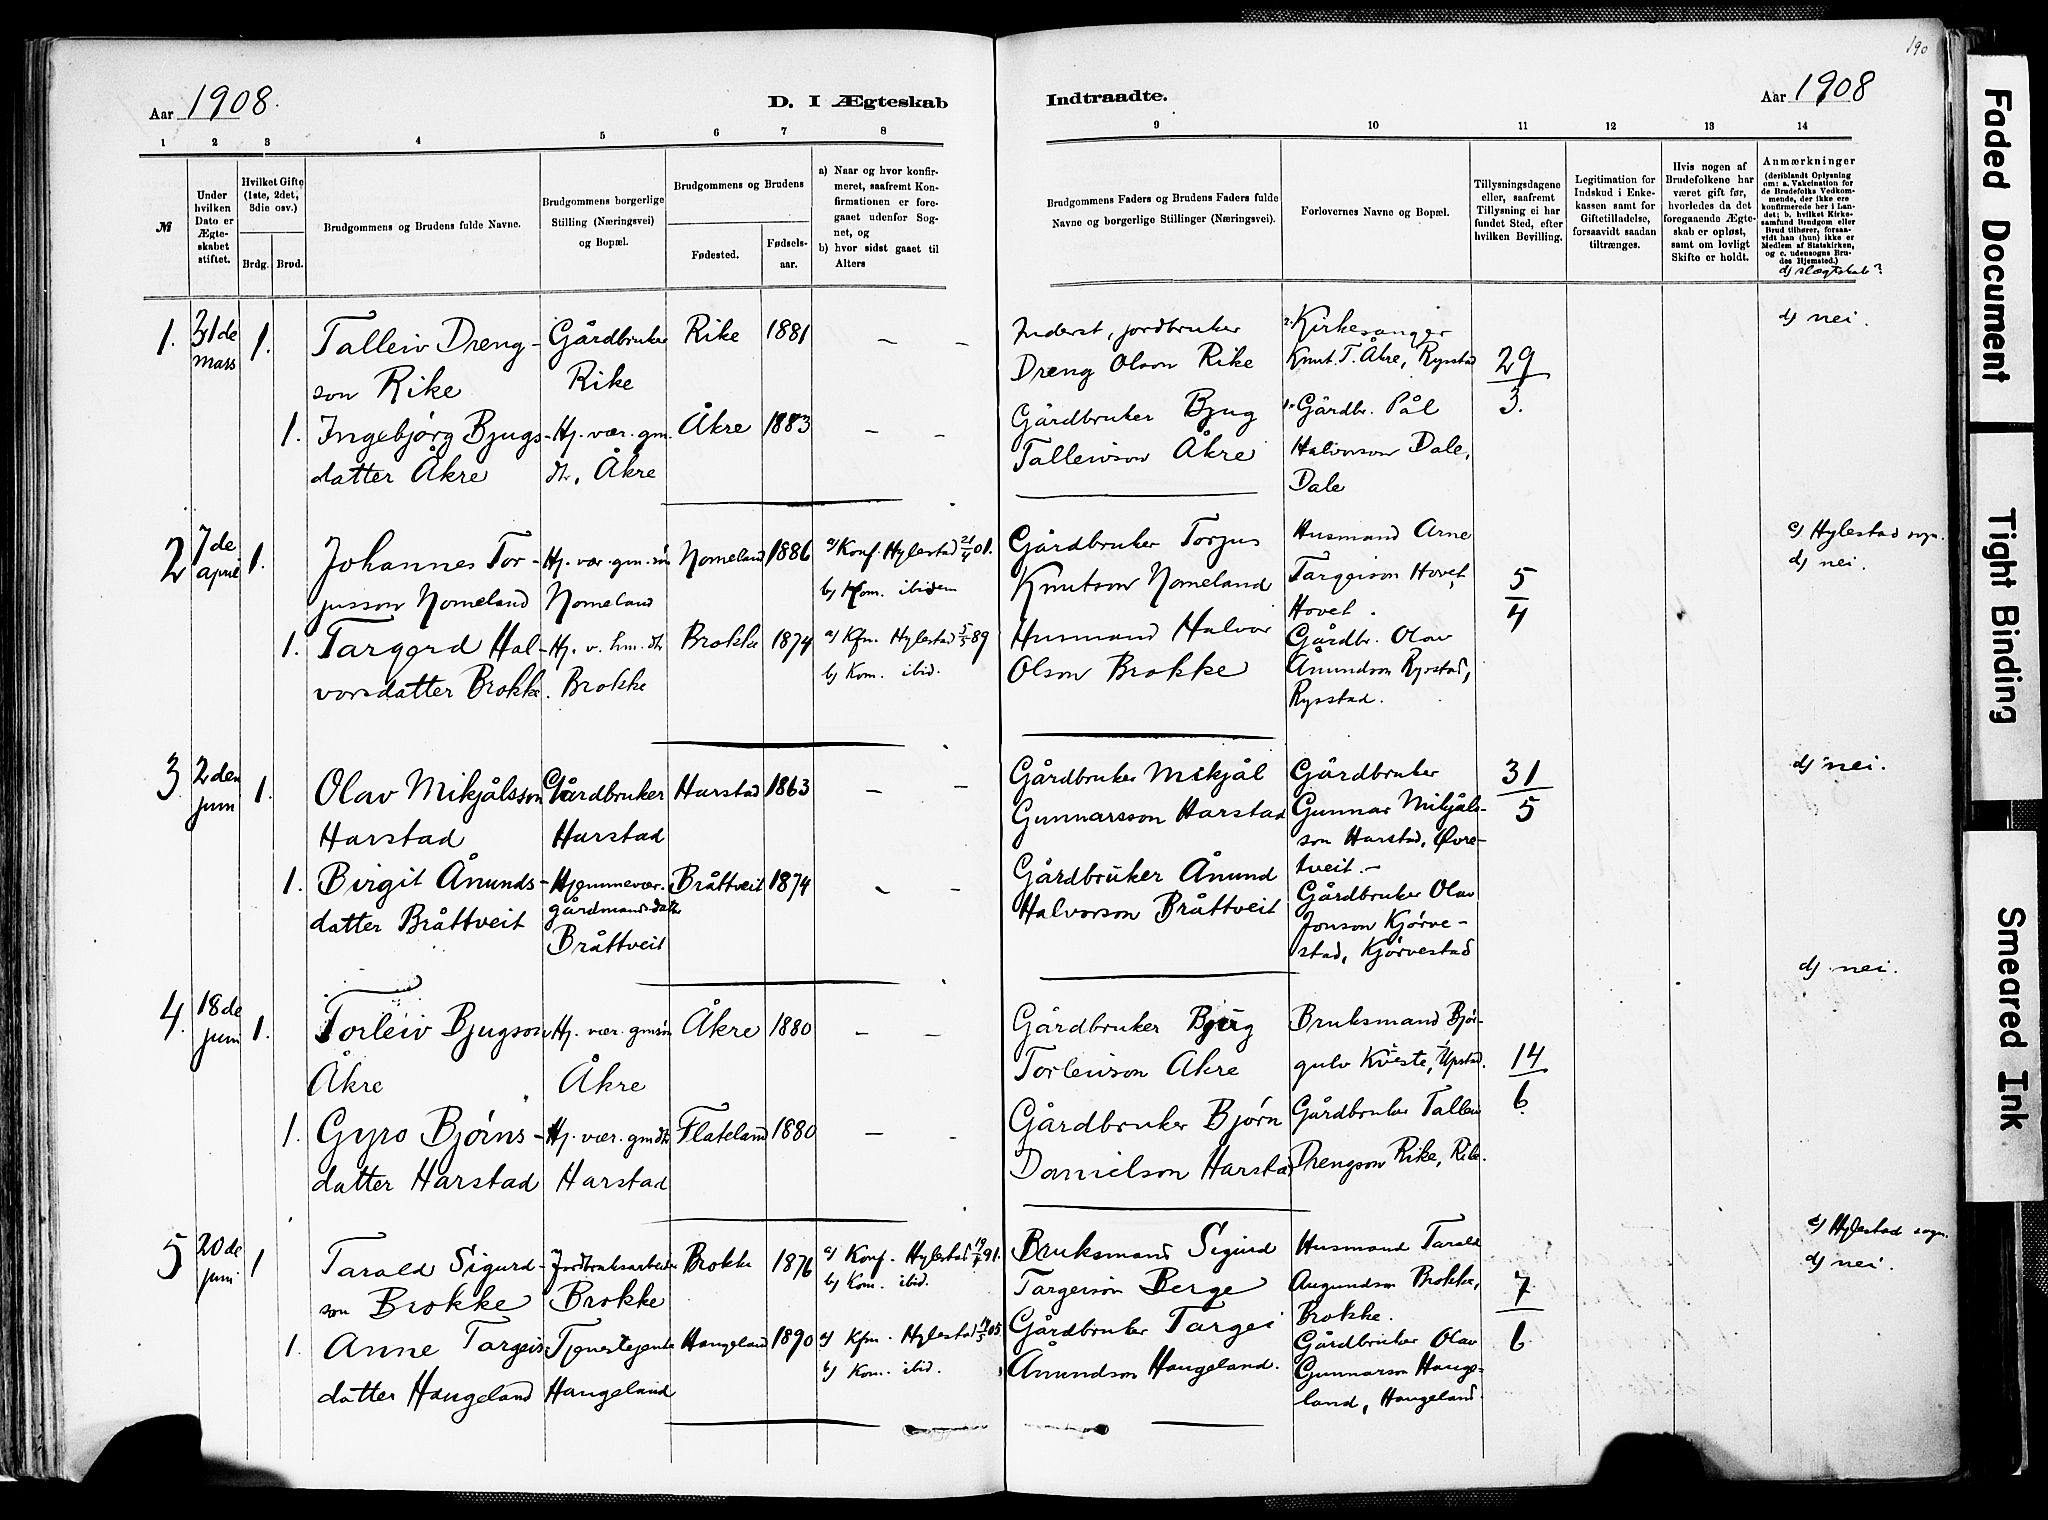 190
Aar 1908.
D. I Ægteskab
Indtraadte.
Aar 1908
1 2 3 4 5 6 7 8 9 10 11 12 13 14
№
Under hvilken Dato er Ægteskabet stiftet.
Hvilket Gifte (1ste, 2det, 3die osv.)
Brdg. Brud.
Brudgommens og Brudens fulde Navne.
Brudgommens borgerlige Stilling (Næringsvei) og Bopæl.
Brudgommens og Brudens
Fødested.
Fødselsaar.
a) Naar og hvor konfirmeret, saafremt Konfirmationen er foregaaet udenfor Sognet, og
b) hvor sidst gaaet til Alters
Brudgommens Faders og Brudens Faders fulde Navne og borgerlige Stillinger (Næringsvei).
Forlovernes Navne og Bopæl.
Tillysningsdagene eller, saafremt Tillysning ei har fundet Sted, efter hvilken Bevilling.
Legitimation for Indskud i Enkekassen samt for Giftetilladelse, forsaavidt saadan tiltrænges.
Hvis nogen af Brudefolkene har været gift før, hvorledes da det foregaaende Ægteskab er opløst, samt om lovligt Skifte er holdt.
Anmærkninger
(deriblandt Oplysning om: a. Vakcination for de Brudefolks Vedkommende, der ikke ere konfirmerede her i Landet; b. hvilket Kirkesamfund Brudgom eller Brud tilhører, forsaavidt han (hun) ikke er Medlem af Statskirken, og c. udensogns Brudes Hjemsted.)
d) slægtskab?
1. 31de mars 1. Talleiv Drengson Rike
Gårdbruker Rike
Rike 1881 – –
Inderst, jordbruker Dreng Olson Rike
2. Kirkesanger Knut T. Åkre, Rysstad
29/3.
d) nei.
1. Ingebjørg Bjugsdatter Åkre
Hj. vær. gm. dtr, Åkre
Åkre 1883 – –
Gårdbruker Bjug Talleivson Åkre
1. Gårdbr. Pål Halvorson Dale, Dale
2 7de april 1. Johannes Torjusson Nomeland
Hj. vær. gm. søn Nomeland
Nomeland 1886
a) Konf. Hylestad 21/4 01.
b) Kom. ibidem
Gårdbruker Torjus Knutson Nomeland
Husmand Arne Targeison Hovet, Hovet.
5/4
c) Hylestad sogn.
d) nei.
1. Targerd Halvorsdatter Brokke.
Hj. v. hm. dtr Brokke
Brokke 1874
a) Kfm. Hylestad 5/5 89
b) Kom. ibid.
Husmand Halvor Olson Brokke
Gårdbr. Olav Ånundson Rysstad, Rysstad.
3 2den juni 1. Olav Mikjålsson Harstad
Gårdbruker Harstad
Harstad 1863 – –
Gårdbruker Mikjål Gunnarsson Harstad
Gårdbruker Gunnar Mikjålsson Harstad, Øvretveit. –
31/5
d) nei.
1. Birgit Ånundsdatter Bråttveit
Hjemmevær. gårdmandsdatter Bråttveit
Bråttveit 1874 – –
Gårdbruker Ånund Halvorson Bråttveit
Gårdbruker Olav Jonson Kjørvestad, Kjørvestad
4. 18de juni 1. Torleiv Bjugson Åkre
Hj. vær. gmsøn Åkre
Åkre 1880 – –
Gårdbruker Bjug Torleivson Åkre
Bruksmand Bjørgulv Kveste, Upstad.
14/6
d) nei.
1. Gyro Bjørnsdatter Harstad
Hj. vær. gmdtr Harstad
Flateland 1880 – –
Gårdbruker Bjørn Danielson Harstad
Gårdbruker Talleiv Drengson Rike, Rike.
5 20de juni 1 Tarald Sigurdson Brokke
Jordbruksarbeider Brokke
Brokke 1876
a) Konf. Hylestad 91.
b) Kom. ibid.
Bruksmand Sigurd Targeison Berge
Husmand Tarald Augundson Brokke, Brokke.
7/6
c) Hylestad sogn.
d) nei.
1. Anne Targeisdatter Haugeland
Tjenestejente Haugeland
Haugeland 1890
a) Kfm. Hylestad 05.
b) Kom. ibid.
Gårdbruker Targei Ånundson Haugeland.
Gårdbruker Olav Gunnarson Haugeland, Haugeland.
Faded Document
Tight Binding
Smeared Ink